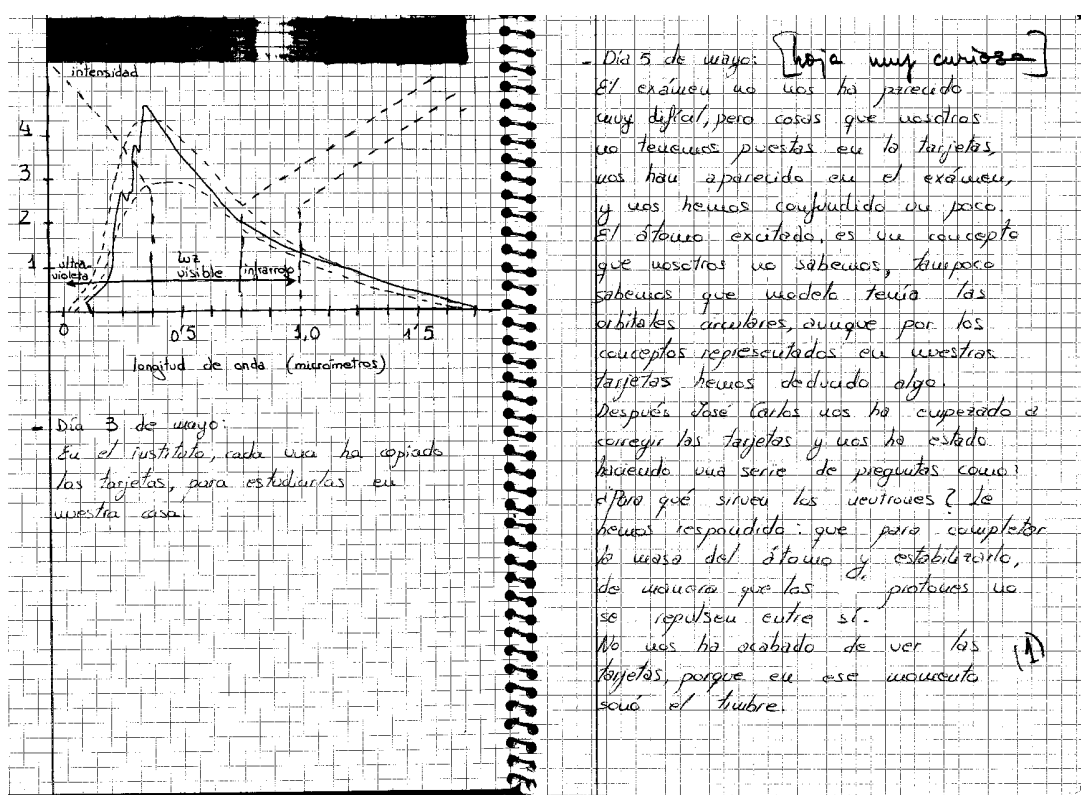 intensidad
4
3
2
1
ultra-
violeta
luz
visible
infrarrojo
0 0'5 1,0 1'5
longitud de onda (micrómetros)
- Día 3 de mayo:
En el instituto, cada una ha copiado
las tarjetas, para estudiarlas en
nuestra casa.
- Día 5 de mayo: [hoja muy curiosa]
El exámen no nos ha parecido
muy difícil, pero cosas que nosotros
no tenemos puestas en la tarjetas,
nos han aparecido en el exámen,
y nos hemos confundido un poco.
El átomo excitado, es un concepto
que nosotros no sabemos, tampoco
sabemos que modelo tenía las
orbitales circulares, aunque por los
conceptos representados en nuestras
tarjetas hemos deducido algo.
Después José Carlos nos ha empezado a
corregir las tarjetas y nos ha estado
haciendo una serie de preguntas como:
¿Para qué sirven los neutrones? Le
hemos respondido: que para completar
la masa del átomo y estabilizarlo,
de manera que los protones no
se repulsen entre sí.
No nos ha acabado de ver las (1)
tarjetas, porque en ese momento
sonó el timbre.